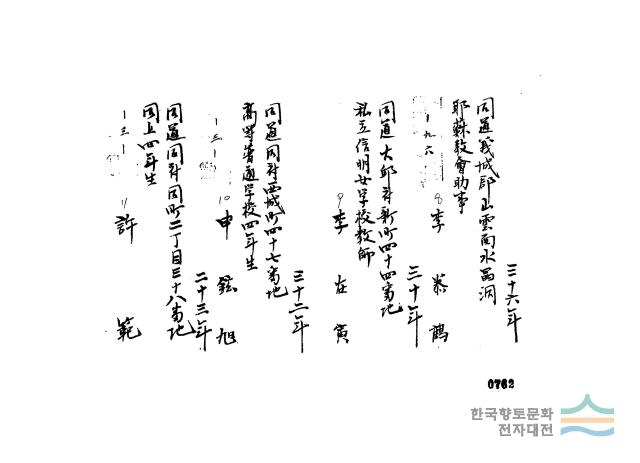 三十六年
同道義城郡山雲面水晶洞
耶蘇教會助事
8 李 泰 鶴
一九六
三十年
同道大邱府新町四十四番地
私立信明女学校教師
9 李 在 寅
三十二年
同道同府西城町四十七番地
高等普通学校四年生
10 申 鉉 旭
一三一
二十三年
同道同府同町二丁目三十八番地
同上四年生
11 許 範
一三一
0762
한국향토문화
전자대전